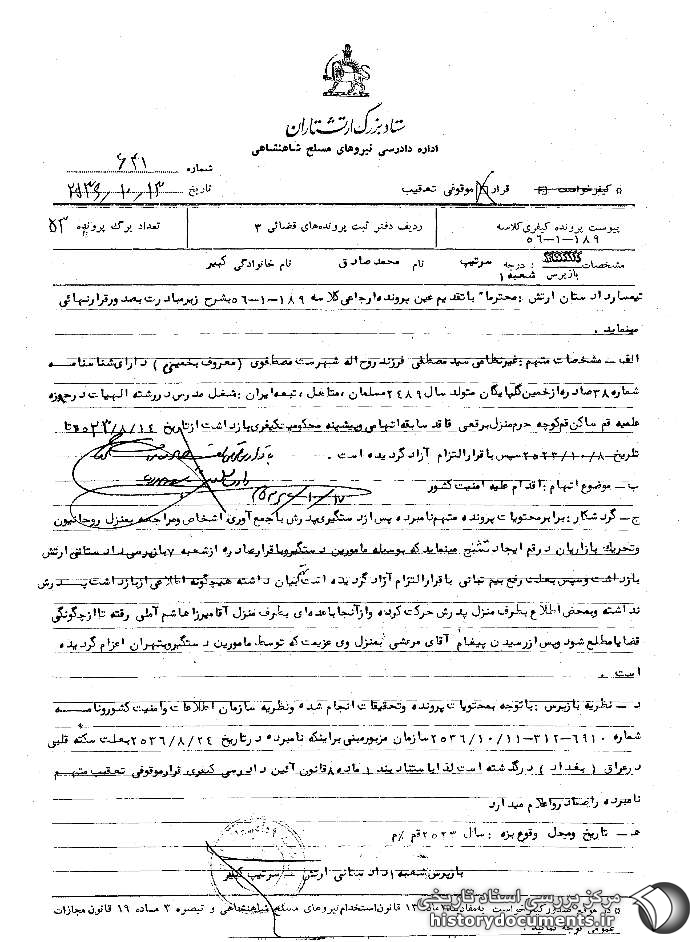 ستاد بزرگ ارتشتاران
اداره دادرسی نیروهای مسلح شاهنشاهی
شماره ۶۴۱
¤ کیفرخواست ¤ قرار موقوفی تعقیب تاریخ ۲۵۳۶٫۱۰٫۱۳
پیوست پرونده کیفری کلاسه ۵۶-۱-۱۸۹ ردیف دفتر ثبت پرونده‌های قضائی ۳ تعداد برگ پرونده ۵۳
مشخصات بازپرس شعبه ۱ : درجه سرتیپ نام محمد صادق نام خانوادگی کبیر
تیمسار دادستان ارتش : محترما" با تقدیم عین پرونده ارجاعی کلاسه ۱۸۹-۱-۵۶ بشرح زیر مبادرت بصدور قرار نهائی
مینماید .
الف - مشخصات متهم : غیرنظامی سید مصطفی فرزند روح اله شهرت مصطفوی ( معروف بخمینی ) دارای شناسنامه
شماره ۳۸ صادره از خمین گلپایگان متولد سال ۲۴۸۹ مسلمان ، متاهل ، تبعه ایران : شغل مدرس در رشته الهیات در حوزه
علمیه قم ساکن قم کوچه حرم منزل برقعی فاقد سابقه اتهامی و پیشینه محکومیت کیفری بازداشت از تاریخ ۲۵۲۳/۸/۱۴ تا
تاریخ ۲۵۲۳/۱۰/۸ سپس با قرار التزام آزاد گردیده است .
ب - موضوع اتهام : اقدام علیه امنیت کشور
ج - گردشکار : برابر محتویات پرونده متهم نامبرده پس از دستگیری پدرش با جمع آوری اشخاص و مراجعه بمنزل روحانیون
و تحریک بازاریان در قم ایجاد تشنج مینماید که بوسیله مامورین دستگیر و با قرار صادره از شعبه ۷ بازپرسی دادستانی ارتش
بازداشت و سپس بعلت رفع بیم تبانی با قرار التزام آزاد گردیده است متهم بیان داشته هیچگونه اطلاعی از بازداشت پدرش
نداشته و بمحض اطلاع بطرف منزل پدرش حرکت کرده و از آنجا با عده‌ای بطرف منزل آقا میرزا هاشم آملی رفته تا از چگونگی
قضایا مطلع شود و پس از رسیدن پیغام آقای مرعشی بمنزل وی عزیمت که توسط مامورین دستگیر و بتهران اعزام گردیده
است .
د - نظریه بازپرس : با توجه بمحتویات پرونده و تحقیقات انجام شده و نظریه سازمان اطلاعات و امنیت کشور و نامه
شماره ۶۹۱۰-۳۱۲-۲۵۳۶/۱۰/۱۱ سازمان مزبور مبنی بر اینکه نامبرده در تاریخ ۲۵۳۶/۸/۲۴ بعلت سکته قلبی
در عراق ( بغداد ) درگذشته است لذا باستناد بند ۱ ماده ۸ قانون آئین دادرسی کیفری قرار موقوفی تعقیب متهم
نامبرده را صادر و اعلام میدارد
هـ - تاریخ و محل وقوع بزه : سال ۲۵۲۳ قم /م
بازپرس شعبه ۱ دادستانی ارتش - سرتیپ کبیر
¤ در موقع صدور کیفرخواست به مفاد ماده ۱۳ قانون استخدام نیروهای مسلح شاهنشاهی و تبصره ۳ ماده ۱۹ قانون مجازات
عمومی توجه نمائید .
مرکز بررسی اسناد تاریخی
historydocuments.ir